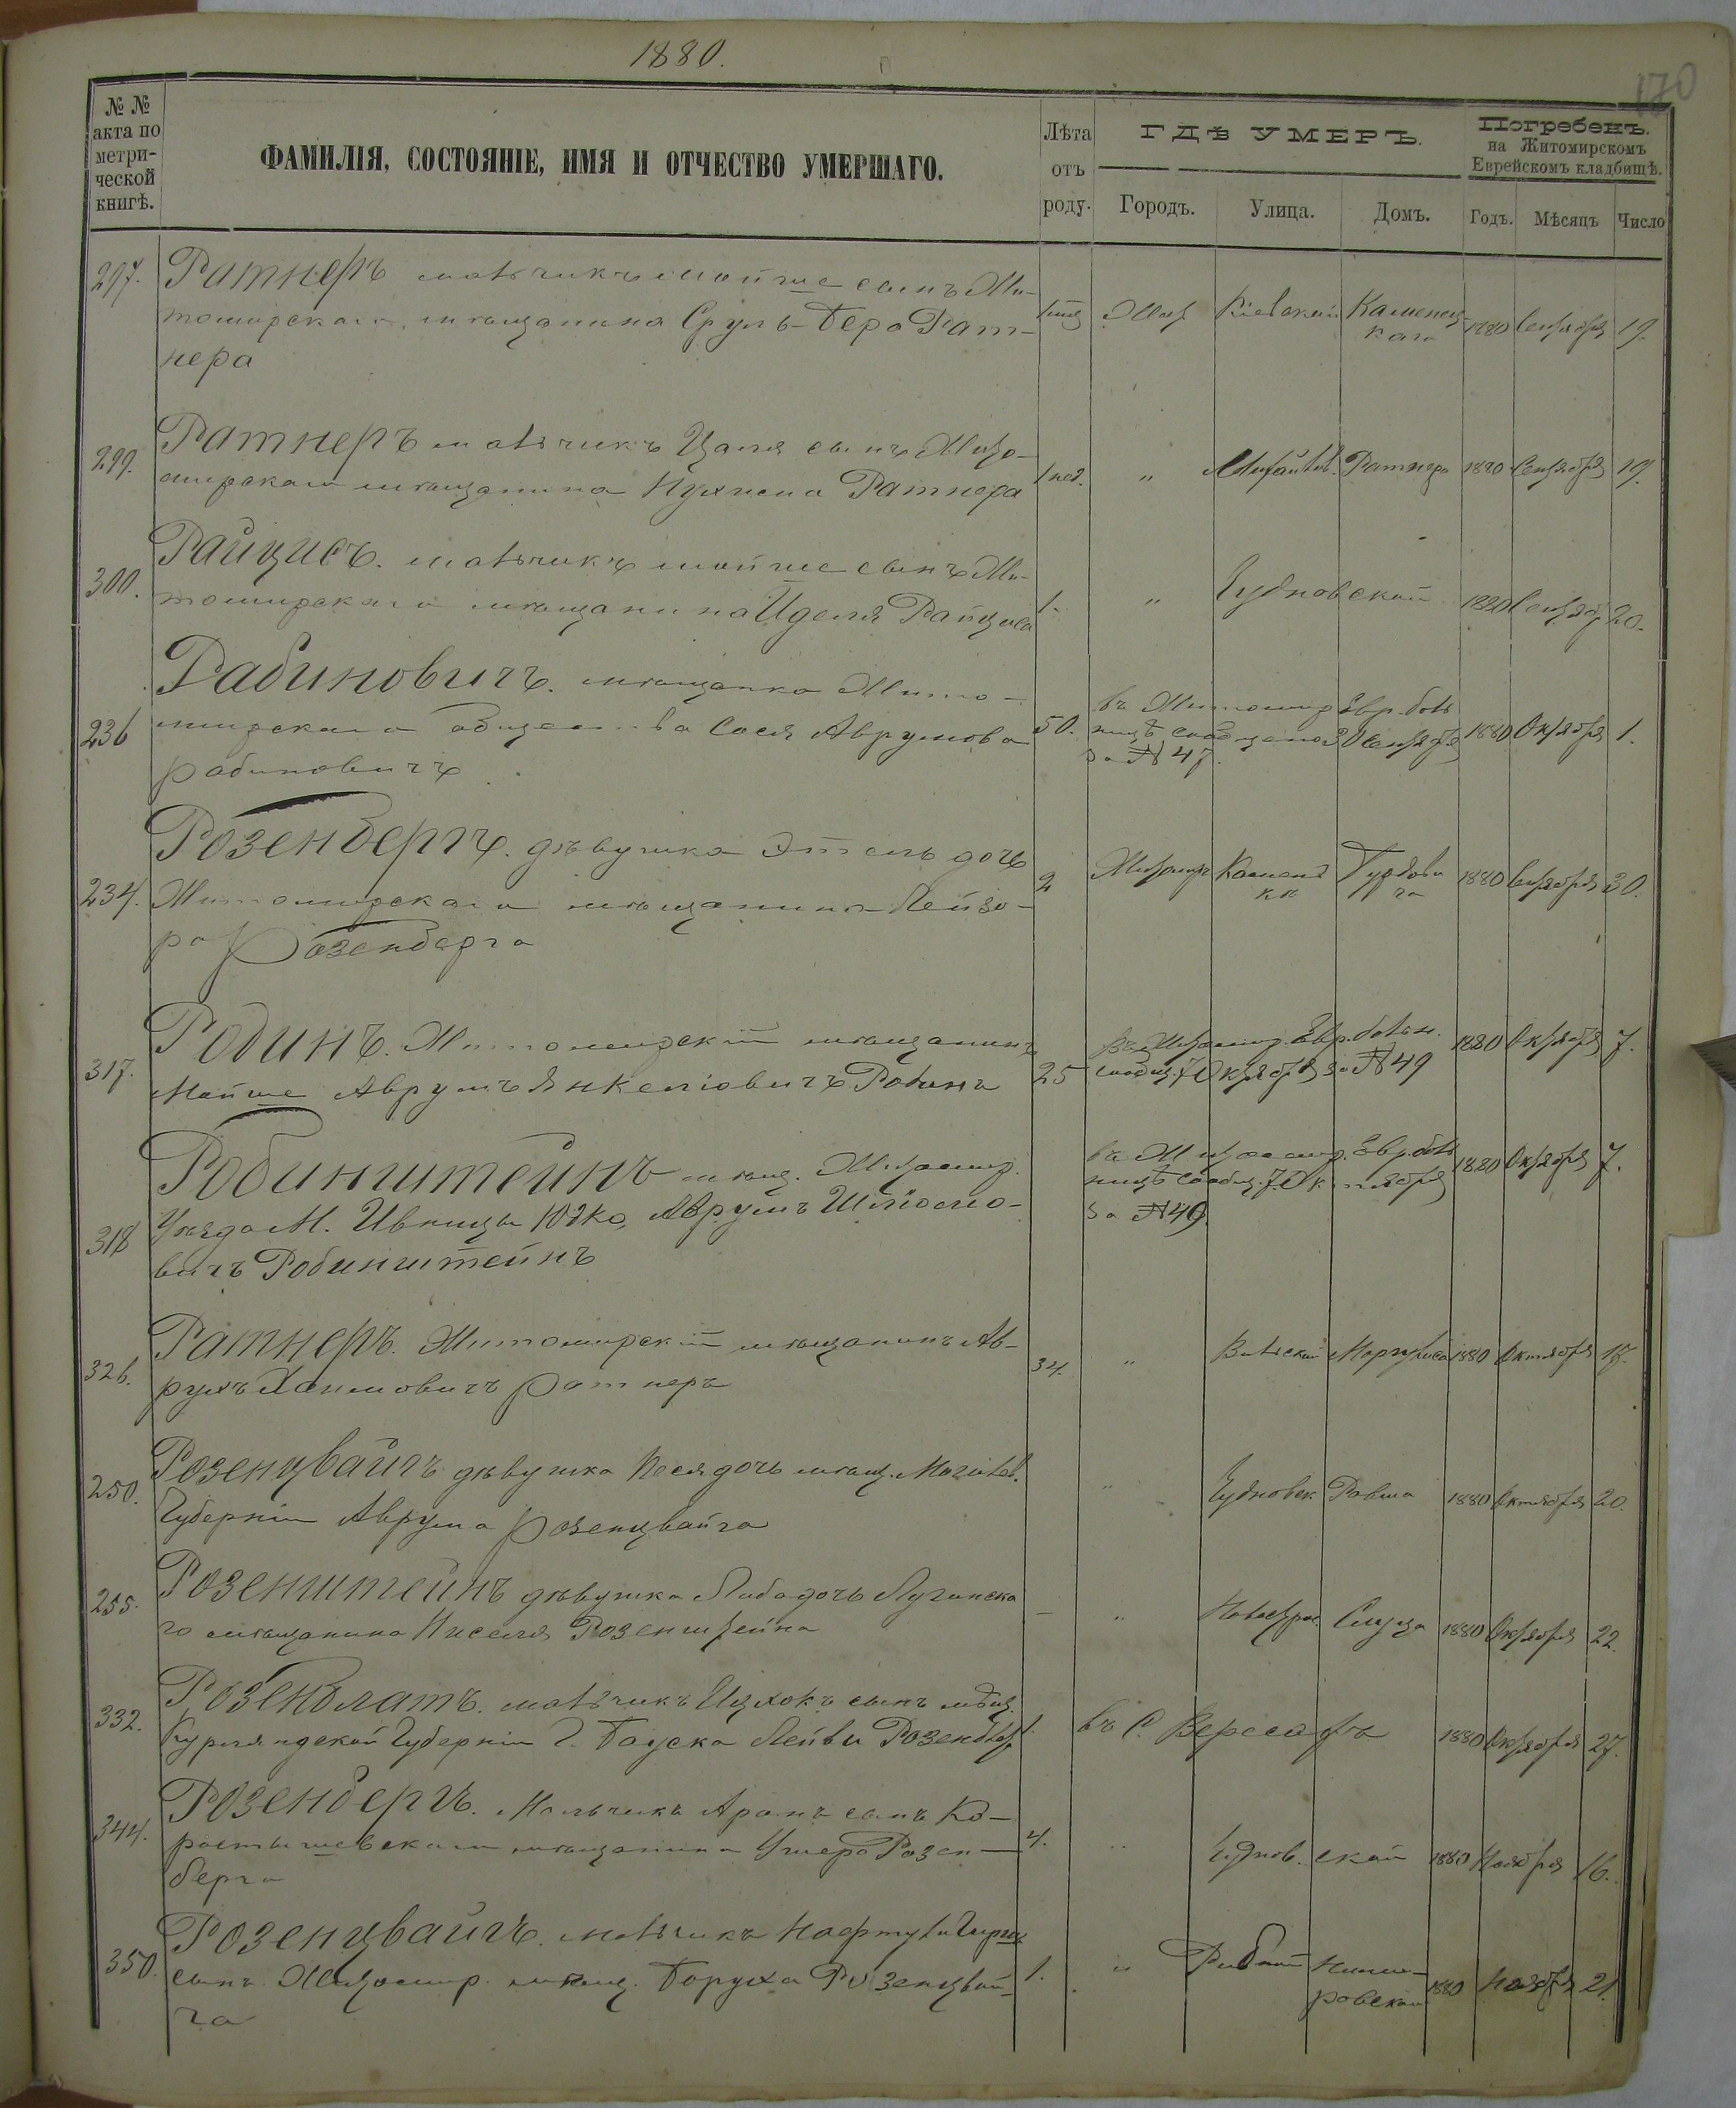 1880.
170
№ №
акта по
метри-
ческой
книгѣ.
ФАМИЛІЯ, СОСТОЯНІЕ, ИМЯ И ОТЧЕСТВО УМЕРШАГО.
Лѣта
отъ
роду.
ГДѢ УМЕРЪ.
Городъ. Улица. Домъ.
Погребенъ.
на Житомирскомъ
Еврейскомъ кладбищѣ.
Годъ. Мѣсяцъ Число
297. Ратнеръ мальчикъ Мойше сынъ Жи-
томирскаго мѣщанина Сруль-Бера Рат-
нера
Жит Кіевской Каменец-
каго 1880 Сентября 19.
299. Ратнеръ мальчикъ Цаля сынъ Жито-
мирскаго мѣщанина Нухима Ратнера
1 нед. " Михайлов. Ратнера 1880 Сентября 19.
300. Райцисъ. мальчикъ Мойше сынъ Жи-
томирскаго мѣщанина Иделя Райциса
1. " Чудновской 1880 Сентябр 20.
236 Рабиновичъ. мѣщанка Жито-
мирскаго общества Сося Аврумова
Рабиновичъ
50. въ Житомир Евр. боль
ницѣ сообщено 30 Сентября
за № 47. 1880 Октября 1.
234. Розенбергъ. дѣвушка Этель дочь
Житомирскаго мѣщанина Лейзо-
ра Розенберга
2 Житомир 1880 Сентября 30.
317. Родинъ. Житомирскій мѣщанинъ
Мойше Аврумъ Янкеліовичъ Родинъ
25 Въ Житомир. Евр. больн.
сообщ. 7 Октября за № 49
1880 Октября 7.
318 Робинштейнъ мѣщ. Житомир.
Уѣзда М. Ивницы Юдко Аврумъ Шліомо-
вичъ Робинштейнъ
въ Житомир. Евр. боль
ницѣ сообщ. 7 Октября
за № 49.
1880 Октября 7.
326. Ратнеръ. Житомирскій мѣщанинъ Ав-
румъ Хаимовичъ Ратнеръ
34. " Вильской Маргулиса 1880 Октября 18.
250. Розенцвайгъ дѣвушка Песя дочь мѣщ. Могилев.
Губерніи Аврума Розенцвайга
" Чудновск. Равша 1880 Октября 20.
255. Розенштейнъ дѣвушка Либа дочь Лугинска
го мѣщанина Киселя Розенштейна
— " 1880 Октября 22.
332. Розенблатъ. мальчикъ Ицхокъ сынъ мѣщ.
Курляндской Губерніи Г. Бауска Лейви Розенблат
1. въ С. 1880 Октября 27.
344. Розенбергъ. Мальчикъ Аронъ сынъ Ко-
ростышевскаго мѣщанина Ушера Розен-
берга
4. " Чуднов. ской 1880 Ноября 16.
350. Розенцвайгъ. мальчикъ Нафтули Гирш
сынъ Житомир. мѣщ. Боруха Розенцвай-
га
1. " Рыбной 1880 Ноября 21.